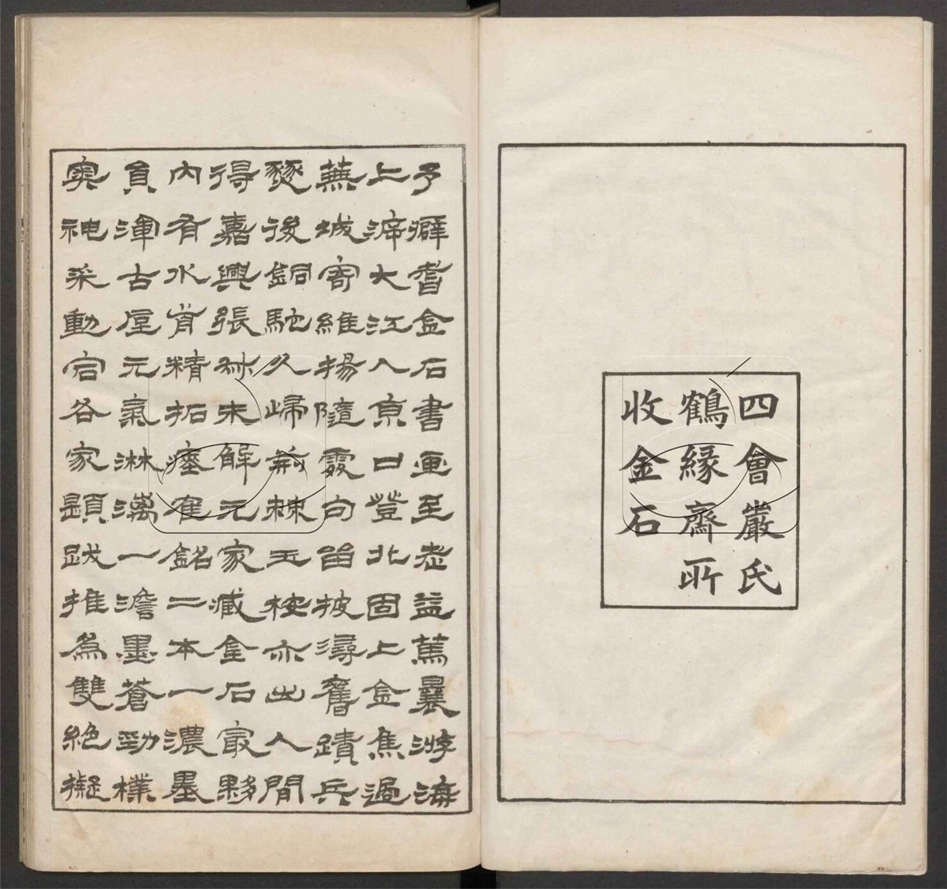 四會嚴氏
鶴緣齋所
收金石
予癖耆金石書画至老益篤曩游海
上泝大江入京口登北固上金焦過
蕪城寄維揚隨處句留披尋舊蹟兵
燹後銅駝久歸荊棘玉椀亦出人間
得嘉興張叔未解元家臧金石最夥
內有水前精拓瘞隺銘二本一濃墨
員渾古厚元氣淋漓一澹墨蒼勁樸
奧神采動宕各家題跋推為雙絕擬